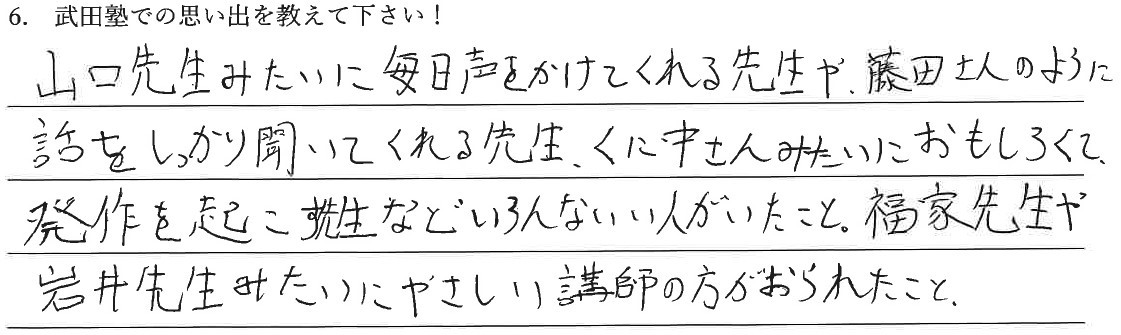 6. 武田塾での思い出を教えて下さい！
山口先生みたいに毎日声をかけてくれる先生や、藤田さんのように
話をしっかり聞いてくれる先生、くに中さんみたいにおもしろくて、
発作を起こす先生などいろんないい人がいたこと。福家先生や
岩井先生みたいにやさしい講師の方がおられたこと。